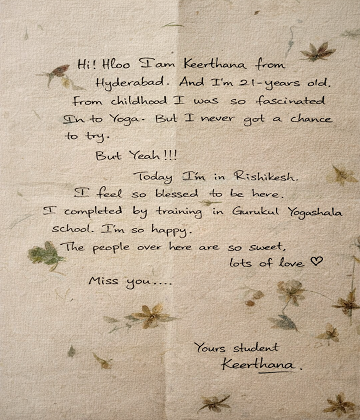 Hi! Hloo I am Keerthana from
Hyderabad. And I'm 21-years old.
From childhood I was so fascinated
In to Yoga. But I never got a chance
to try.
But Yeah!!!
Today I'm in Rishikesh.
I feel so blessed to be here.
I completed by training in Gurukul Yogashala
school. I'm so happy.
The people over here are so sweet,
lots of love ♡
Miss you....
Yours student
Keerthana.